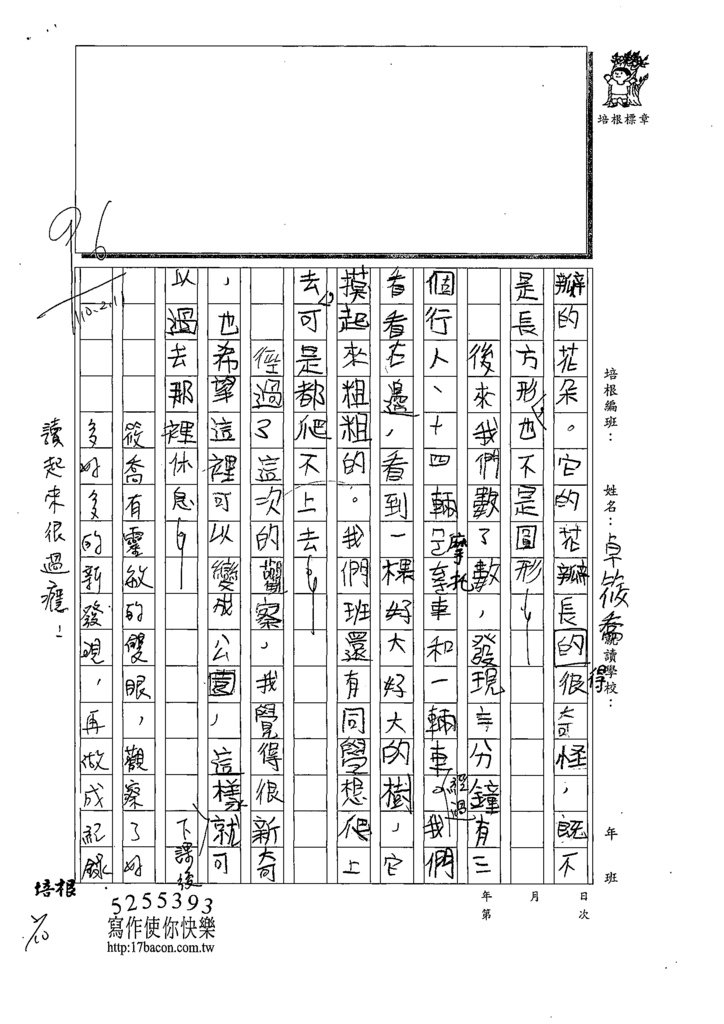 培根標章
培根編班：
姓名：卓筱喬
就讀學校：
年 班
月 日
年第 次
瓣的花朵。它的花瓣長的很奇怪，既不
得
是長方形也不是圓形
後來我們數了數，發現 分鐘有三
個行人、十四輛 車和一輛車。我們
摩托
經過
看看在邊，看到一棵好大好大的樹，它
摸起來粗粗的。我們班還有同學想爬上
去可是都爬不上去
經過了這次的觀察，我覺得很新奇
，也希望這裡可以變成公園，這樣就可
下課後
以過去那裡休息
筱喬有靈敏的雙眼，觀察了好
多好多的新發現，再做成紀錄
讀起來很過癮！
96
110.2.11
培根
1/10
5255393
寫作使你快樂
http:17bacon.com.tw